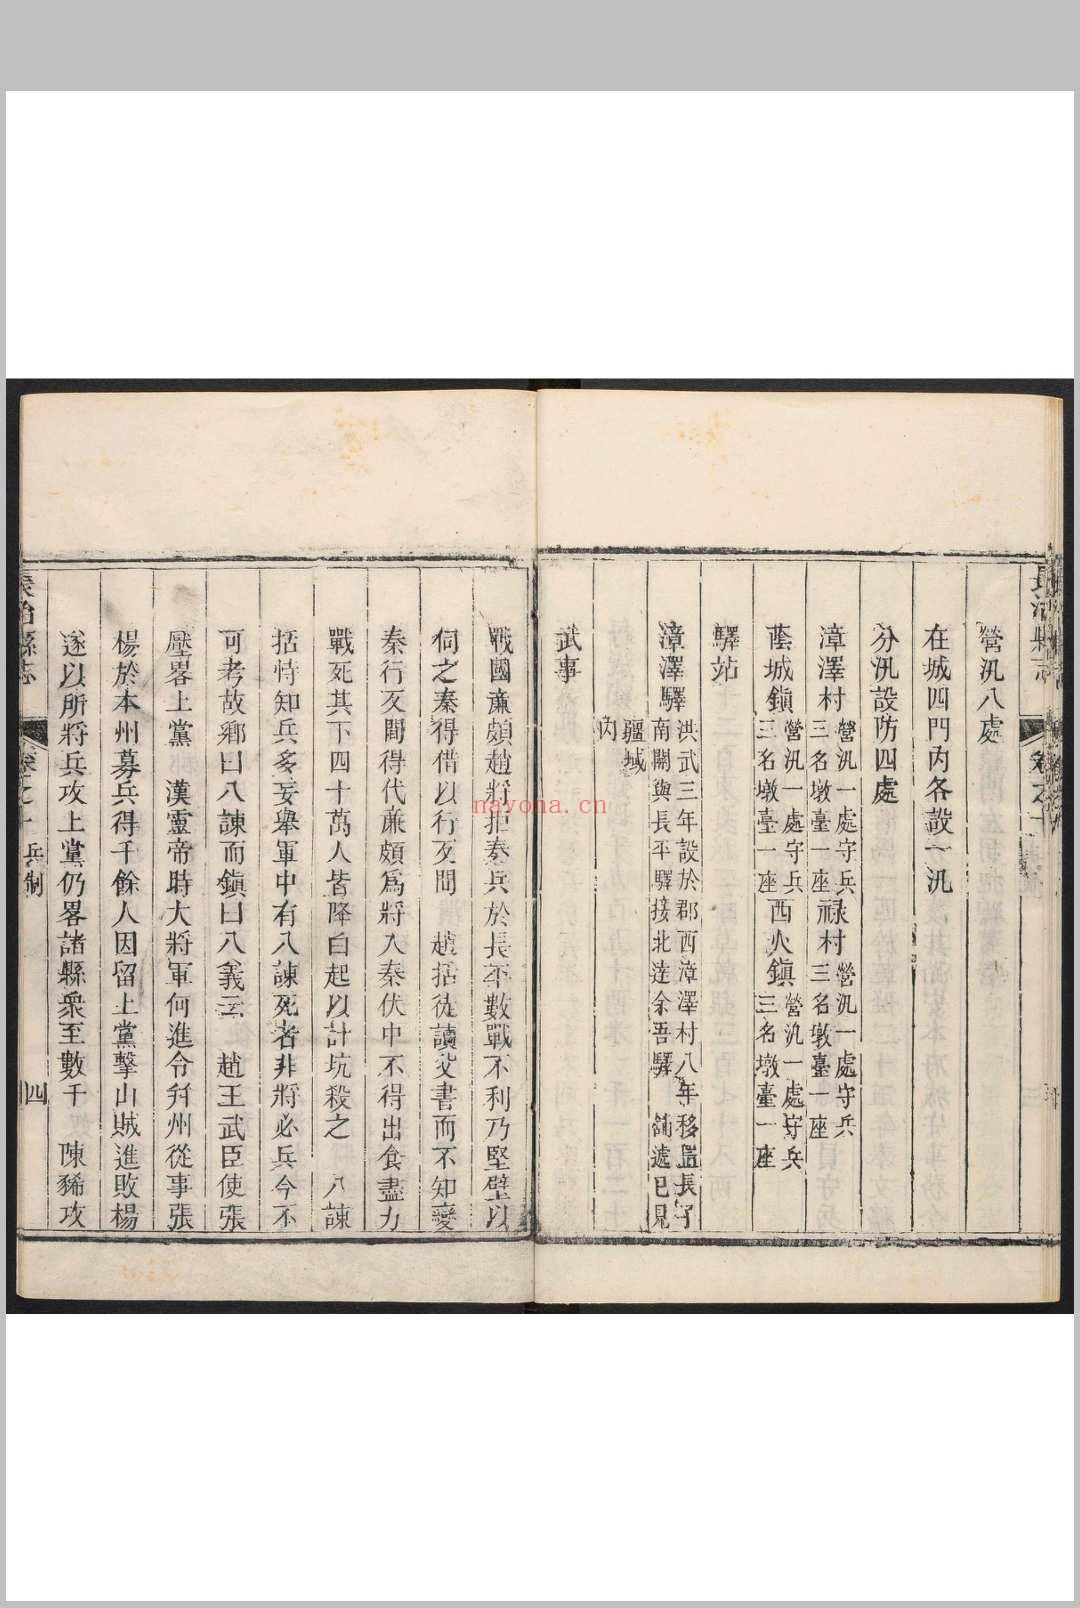 長治縣志
卷之十
營汛八處
在城四門內各設一汛
分汛設防四處
漳澤村營汛一處守兵三名墩臺一座祿村營汛一處守兵三名墩臺一座
蔭城鎮營汛一處守兵三名墩臺一座西火鎮營汛一處守兵三名墩臺一座
驛站
漳澤驛洪武三年設於郡西漳澤村八年移置長子南關與長平驛接北達余吾驛 鋪遞已見
疆域內
武事
戰國廉頗趙將拒秦兵於長平數戰不利乃堅壁以
伺之秦得借以行反間 趙括徒讀父書而不知變
秦行反間得代廉頗爲將入秦伏中不得出食盡力
戰死其下四十萬人皆降白起以計坑殺之 八諫
括恃知兵多妄舉軍中有八諫死者非將必兵今不
可考故鄉曰八諫而鎮曰八義云 趙王武臣使張
壓畧上黨 漢靈帝時大將軍何進令幷州從事張
楊於本州募兵得千餘人因留上黨擊山賊進敗楊
遂以所將兵攻上黨仍畧諸縣衆至數千 陳豨攻
長治縣志
卷之十
兵制
四
nayona.cn